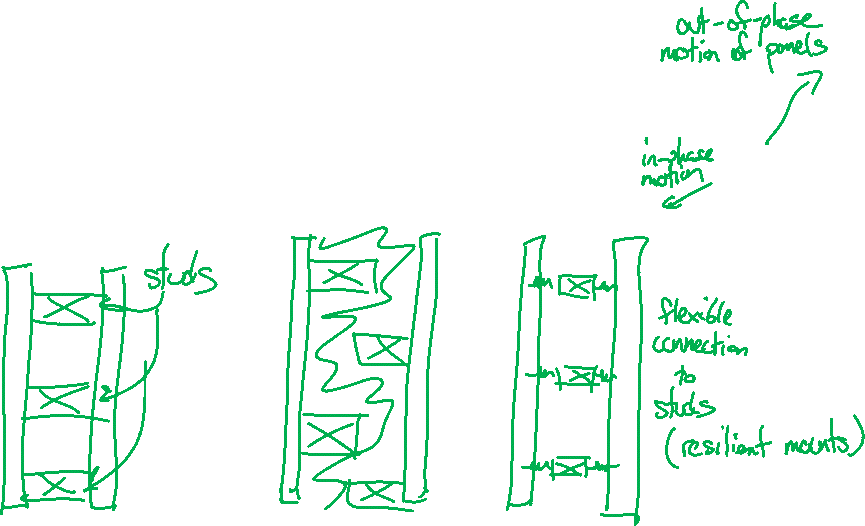 out-of-phase
motion of panels
in-phase
motion
studs
flexible
connection
to
studs
(resilient mounts)